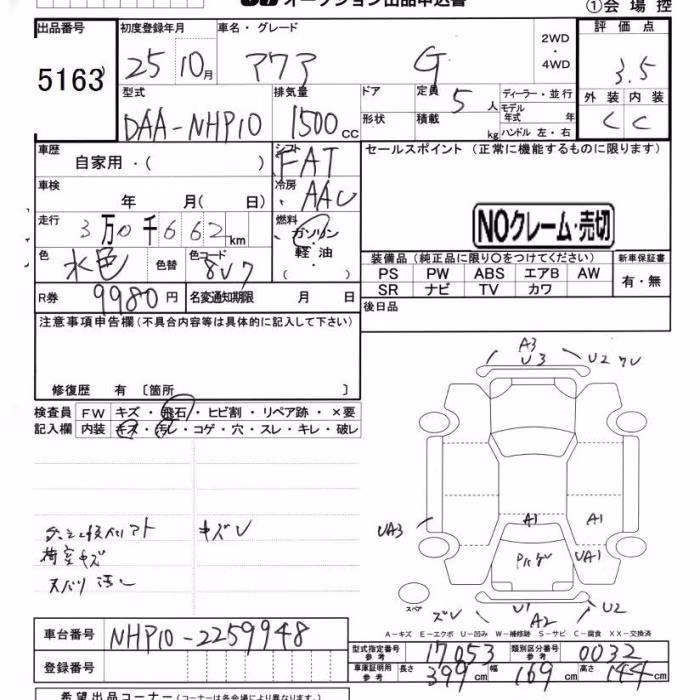 オークション出品申込書
①会場控
出品番号 初度登録年月 車名・グレード 2WD・4WD 評価点
5163 25 10月 アクア G 3.5
型式 排気量 ドア 定員 5人 ディーラー・並行 外装 内装
DAA-NHP10 1500cc 形状 積載 kg モデル年式 年 C C
ハンドル 左・右
車歴 自家用・( ) シフト FAT セールスポイント (正常に機能するものに限ります)
車検 年 月( 日) 冷房 AAC
走行 3万0千662km 燃料 ガソリン・軽油・( ) NOクレーム・売切
色 水色 色替 色コード 8V7 装備品(純正品に限り○をつけてください) 新車保証書
PS PW ABS エアB AW 有・無
SR ナビ TV カワ
R券 9980円 名変通知期限 月 日 後日品
注意事項申告欄(不具合内容等は具体的に記入して下さい)
修復歴 有 〔箇所 〕
検査員 FW キズ・飛石・ヒビ割・リペア跡・×要
記入欄 内装 キズ・汚レ・コゲ・穴・スレ・キレ・破レ
A3
U3 U2
UA3 A1 A1
UA1
キズ
荷室キズ
スペア
U1 U2
A2
A-キズ E-エクボ U-凹み W-補修跡 S-サビ C-腐食 XX-交換済
車台番号 NHP10-2259948
型式指定番号参考 17053 類別区分番号参考 0032
登録番号 車庫証明用参考 長さ 399cm 幅 169cm 高さ 144cm
希望出品コーナー(コーナーは各会場により異なります。)